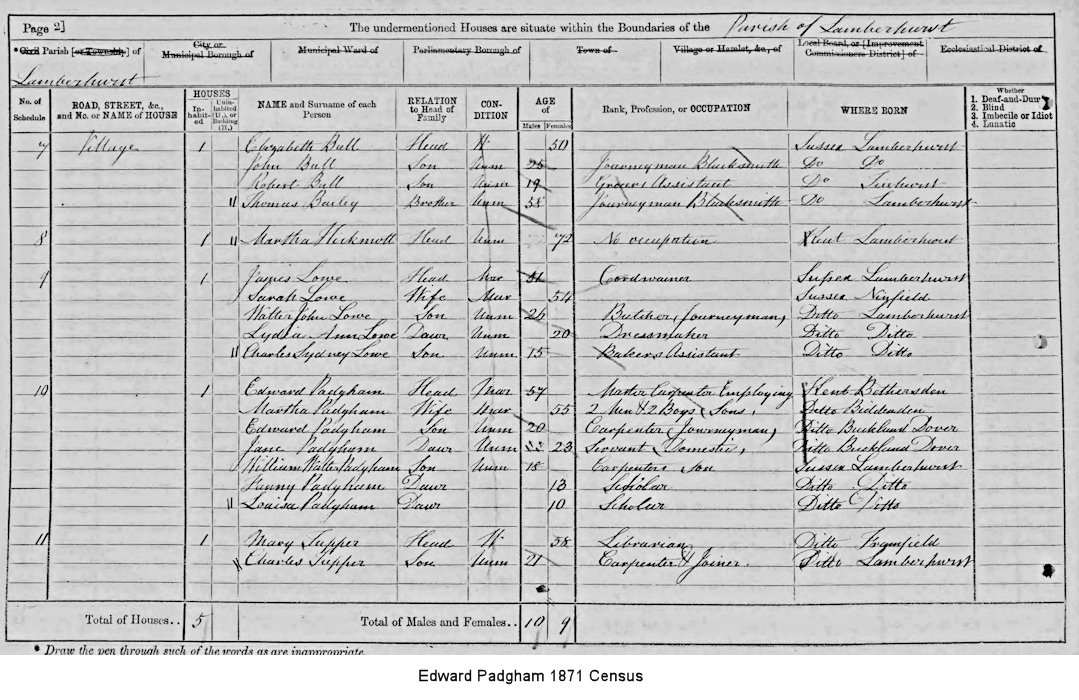 Page 2] The undermentioned Houses are situate within the Boundaries of the Parish of Lamberhurst
* Civil Parish [or Township] of City or Municipal Borough of Municipal Ward of Parliamentary Borough of Town of Village or Hamlet, &c., of Local Board, or [Improvement Commissioners District] of Ecclesiastical District of
Lamberhurst
No. of Schedule ROAD, STREET, &c., and No. or NAME of HOUSE HOUSES Inhabited Uninhabited (U.), or Building (B.) NAME and Surname of each Person RELATION to Head of Family CONDITION AGE Males Females Rank, Profession, or OCCUPATION WHERE BORN Whether 1. Deaf-and-Dumb 2. Blind 3. Imbecile or Idiot 4. Lunatic
7 Village 1 Elizabeth Bull Head W 50 Sussex Lamberhurst
John Bull Son Unm 25 Journeyman Blacksmith Do Do
Robert Bull Son Unm 19 Grocers Assistant Do
Thomas Brother Unm Journeyman Blacksmith Do Lamberhurst
8 1 Martha Hickmott Head Unm 72 No occupation Kent Lamberhurst
9 1 James Lowe Head Mar 51 Cordwainer Sussex Lamberhurst
Sarah Lowe Wife Mar 54 Sussex Ninfield
Walter John Lowe Son Unm 26 Butcher (Journeyman) Ditto Lamberhurst
Lydia Ann Lowe Dawr Unm 20 Dressmaker Ditto Ditto
Charles Sydney Lowe Son Unm 15 Bakers Assistant Ditto Ditto
10 1 Edward Padgham Head Mar 57 Master Carpenter Employing Kent Bethersden
Martha Padgham Wife Mar 55 2 Men & 2 Boys (Sons) Ditto Biddenden
Edward Padgham Son Unm 20 Carpenter (Journeyman) Ditto Buckland Dover
Jane Padgham Dawr Unm 23 Servant (Domestic) Ditto Buckland Dover
William Walter Padgham Son Unm 18 Carpenters Son Sussex Lamberhurst
Fanny Padgham Dawr 13 Scholar Ditto Ditto
Louisa Padgham Dawr 10 Scholar Ditto Ditto
11 1 Mary Tupper Head W 58 Librarian Ditto Framfield
Charles Tupper Son Unm 21 Carpenter & Joiner Ditto Lamberhurst
Total of Houses.. 5 Total of Males and Females.. 10 9
* Draw the pen through such of the words as are inappropriate.
Edward Padgham 1871 Census